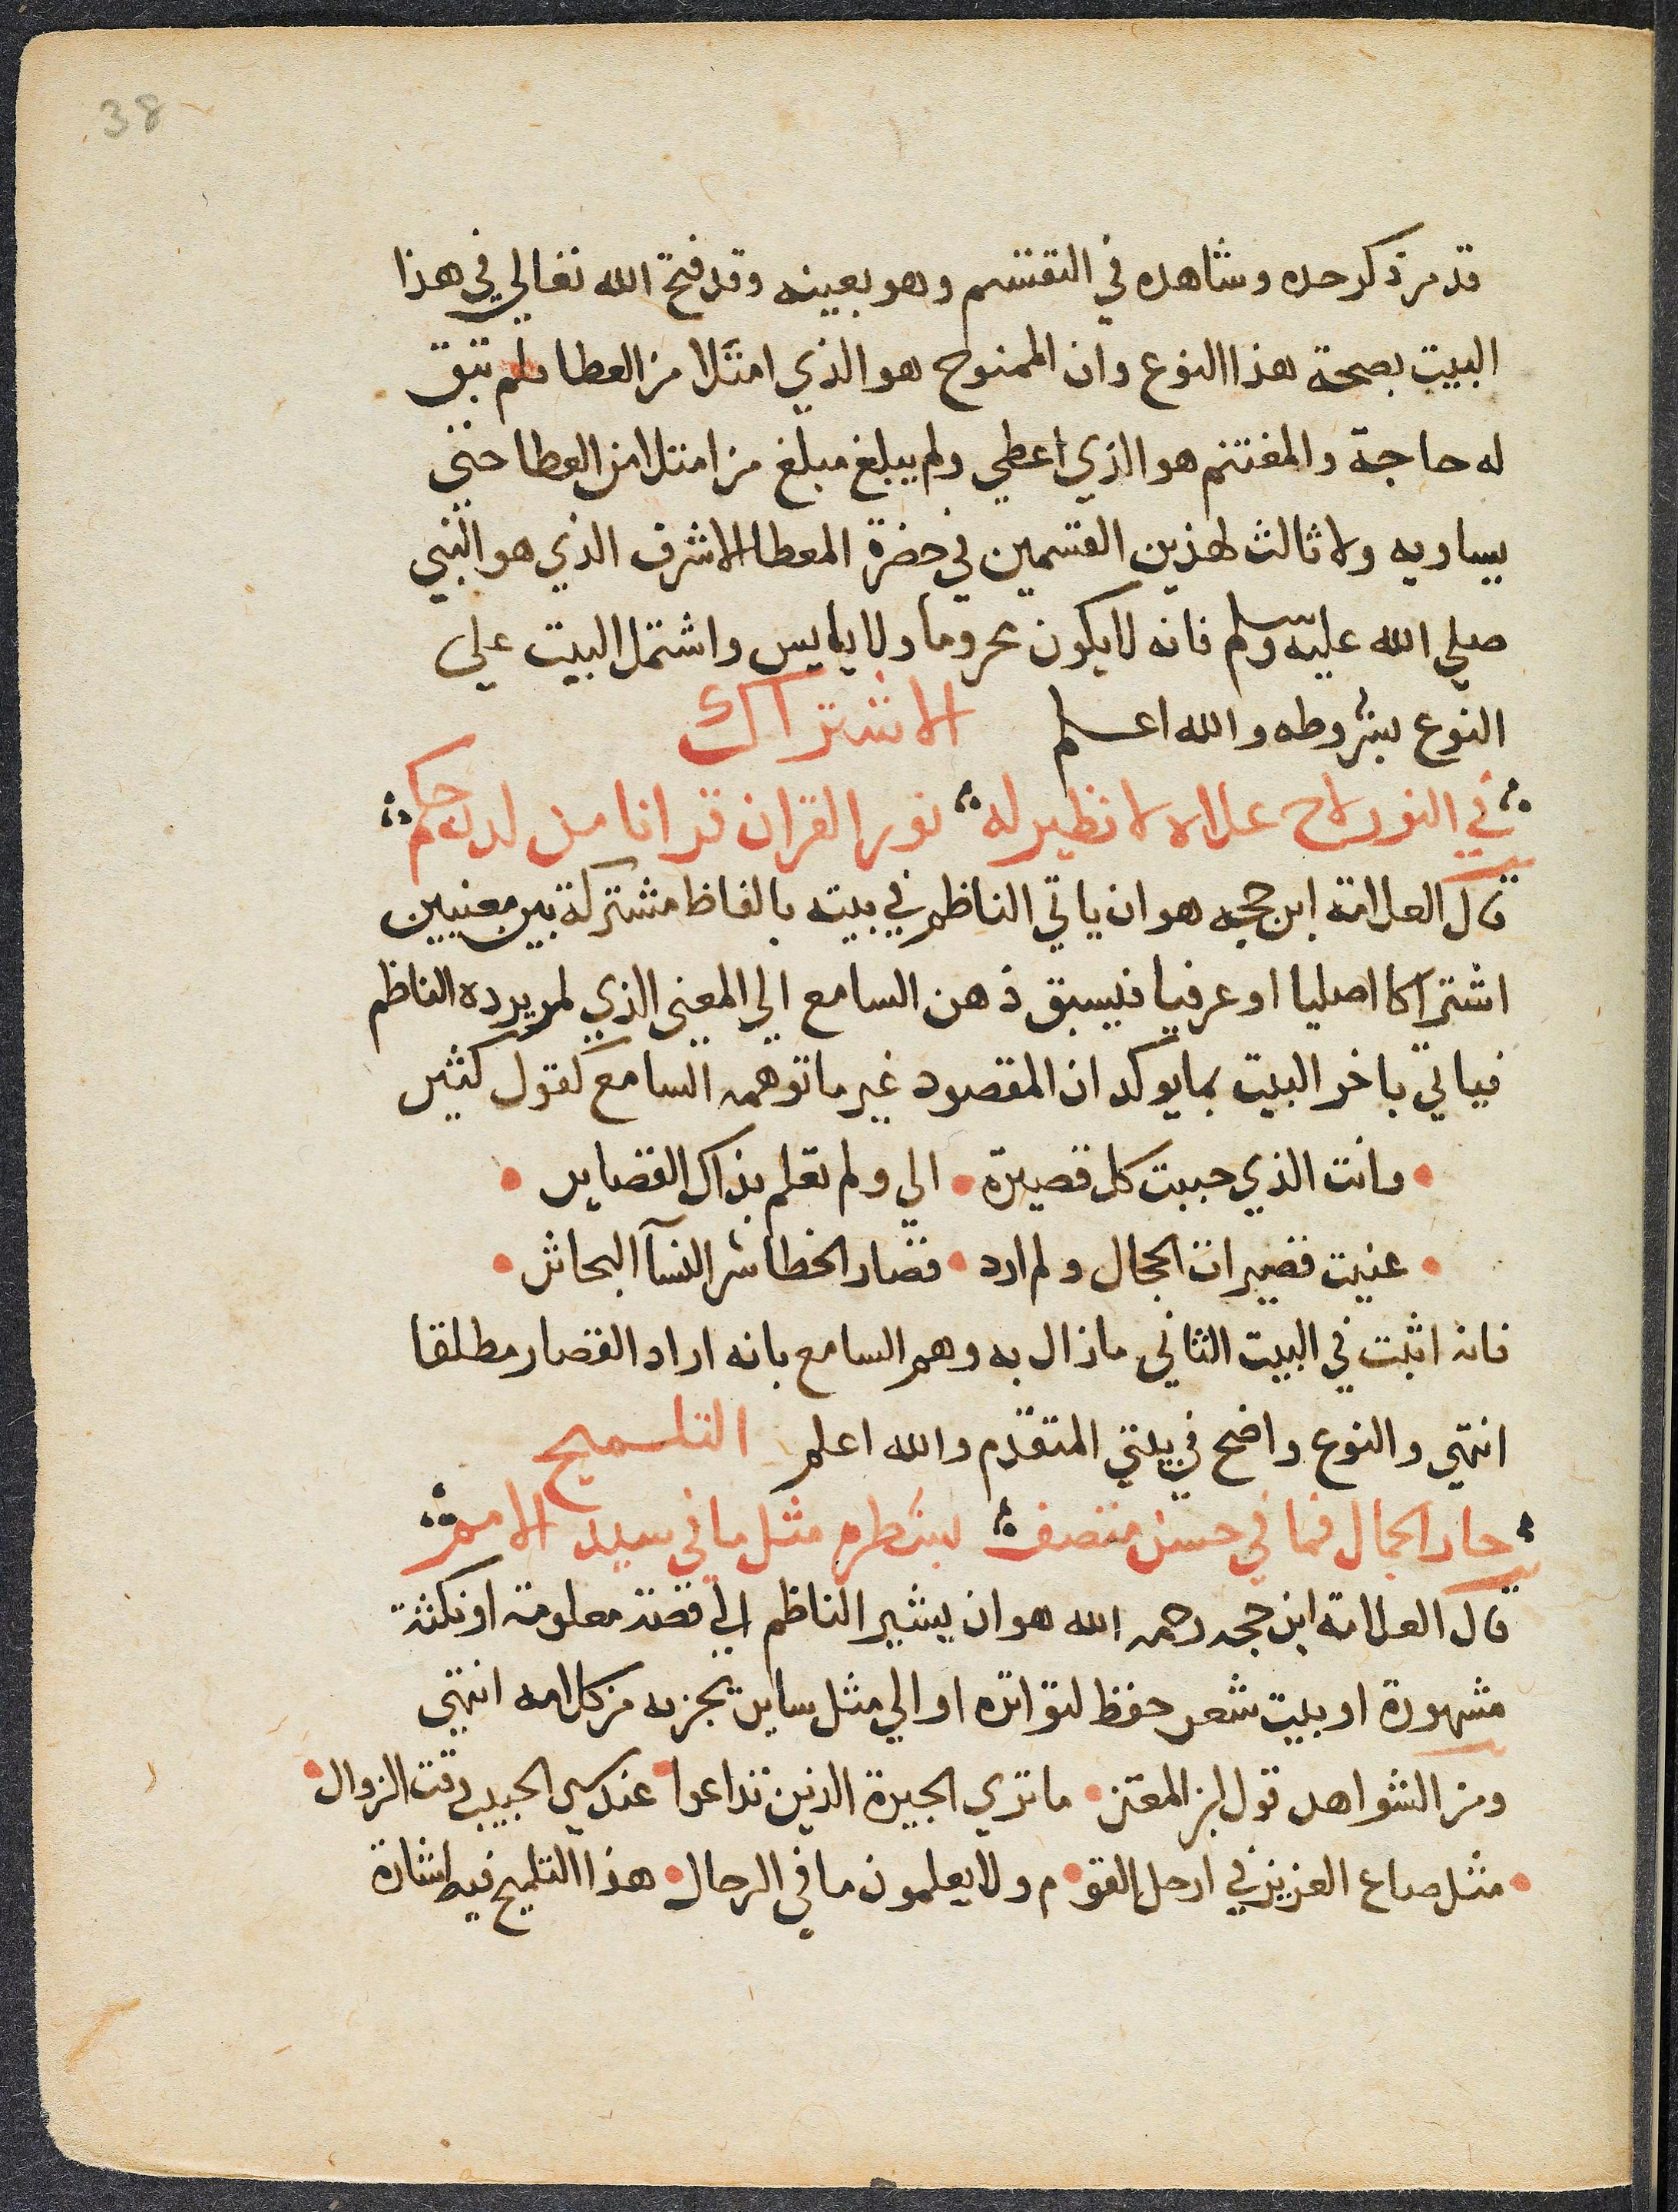 38
قد مر ذكر حده وشاهده في التقسيم وهو بعينه وقد فتح الله تعالي في هذا
البيت بصحة هذا النوع وان الممنوح هو الذي امتلا من العطا فلم تبق
له حاجة والمغتنم هو الذي اعطي ولم يبلغ مبلغ من امتلا من العطا حتى
يساويه ولا ثالث لهذين القسمين في حضرة المعطا الاشرف الذي هو النبي
صلي الله عليه وسلم فانه لا يكون محروما ولا يايس واشتمل البيت على
النوع بشروطه والله اعلم الاشتراك
في النور لاح علاه لا نظير له نور القران قد اتا من لدن حكم
قال العلامة ابن حجه هو ان ياتي الناظم في بيته بالفاظ مشتركة بين معنيين
اشتراكا اصليا او عرفيا فيسبق ذهن السامع الي المعنى الذي لم يرده الناظم
فياتي باخر البيت بما يوكد ان المقصود غير ما توهمه السامع كقول كثير
وانت الذي حببت كل قصيرة الي ولم تعلم بذاك القصاير
عنيت قصيرات الحجال ولم ارد قصار الخطا شر النسآ البحاتر
فانه اثبت في البيت الثاني ما زال به وهم السامع بانه اراد القصار مطلقا
انتهي والنوع واضح في بيتي المتقدم والله اعلم التلميح
حاز الجمال فما في حسن متصف بشطره مثل ما في سيد الامم
قال العلامة ابن حجه رحمه الله هو ان يشير الناظم الي قصة معلومة او نكتة
مشهورة او بيت شعر حفظ لتواتره او الي مثل ساير تجزيه من كلامه انتهى
ومن الشواهد قول ابن المعتز ما تري الجيرة الذين تداعوا عند سير الحبيب وقت الزوال
مثل صاع العزيز في ارحل القو م ولا يعلمون ما في الرحال هذا التلميح فيه اشارة